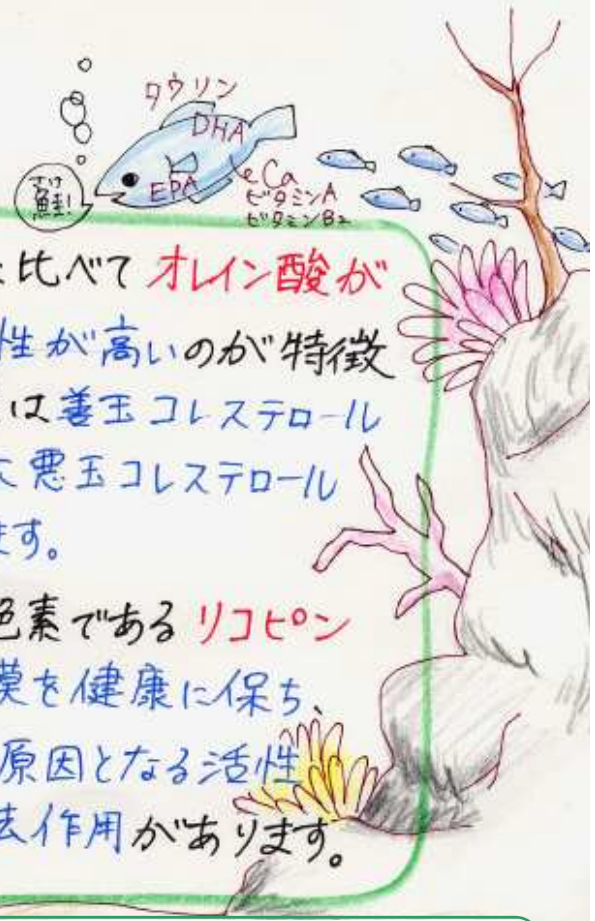 タウリン
DHA
EPA
Ca
ビタミンA
ビタミンB2
鮭!
比べてオレイン酸が
性が高いのが特徴
は善玉コレステロール
悪玉コレステロール
ます。
色素であるリコピン
膜を健康に保ち、
原因となる活性
去作用があります。